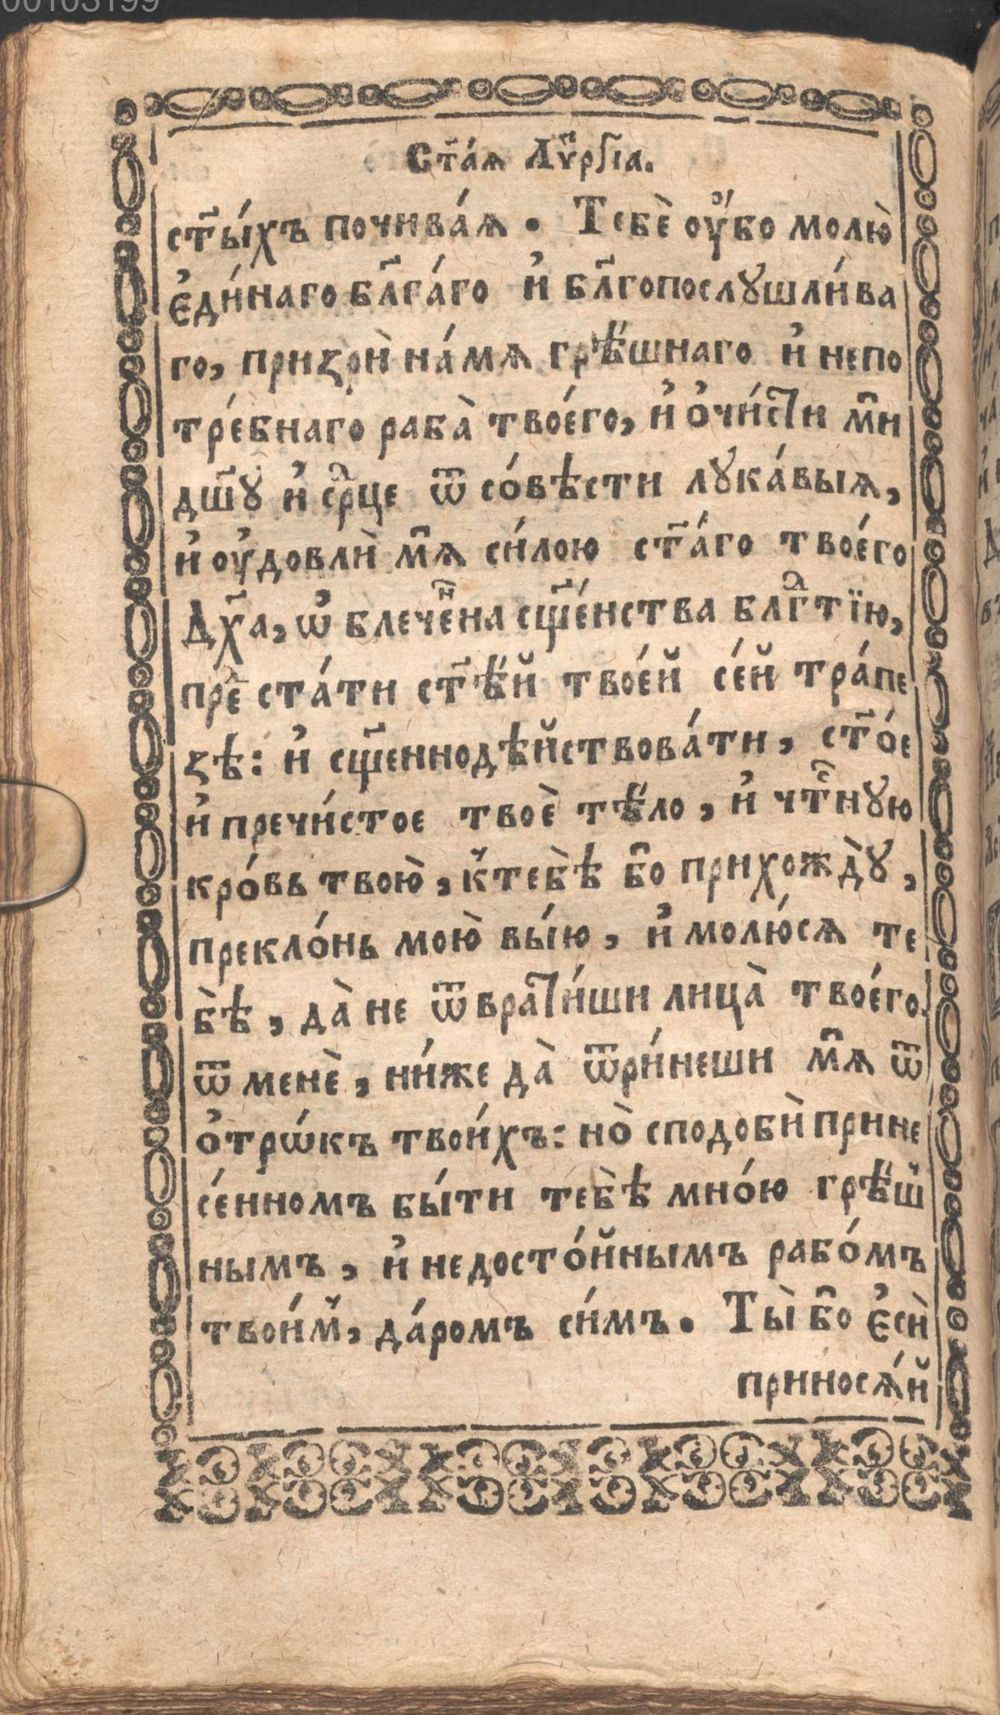 00103199
Ст҃а́ѧ Лꙋ̑ргіа.
ст҃ы́хъ почива́ѧ. Тебѐ оу҆́бо молю̀
є҆ди́наго бл҃га́го и҆ бл҃гопослꙋшли́ва
го, при́зрѝ на́мѧ грѣ́шнаго и҆ непо
тре́бнаго раба̀ твоего̀, и҆ ѻ҆чи́сти мѝ
дш҃ꙋ и҆ ср҃це ѿ со́вѣсти лꙋка́выѧ,
и҆ оу҆довлѝ мѧ̀ си́лою ст҃а́го твоего̀
Дх҃а, ѡ҆блече́нна сщ҃е́нства блг҃тїю,
пред̾ста́ти ст҃ѣ́й твое́й се́й тра́пе
зѣ: и҆ сщ҃еннодѣйствова́ти, ст҃о́е
и҆ пречи́стое твоѐ тѣ́ло, и҆ чт҃нꙋю
кро́вь твою̀, к̾тебѣ̀ бо̀ прихождꙋ̀,
прекло́нь мою̀ вы́ю, и҆ молю́сѧ те
бѣ̀, да̀ не ѿврати́ши лица̀ твоего̀
ѿ менѐ, ни́же да̀ ѿри́неши мѧ̀ ѿ
ѻ҆трѡ́къ твои́хъ: но̀ сподобѝ прине
се́нномъ бы́ти тебѣ̀ мно́ю грѣ́ш
нымъ, и҆ недосто́йнымъ рабо́мъ
твои́м̾, да́ромъ си́мъ. Ты̀ бо̀ є҆сѝ
приносѧ́й